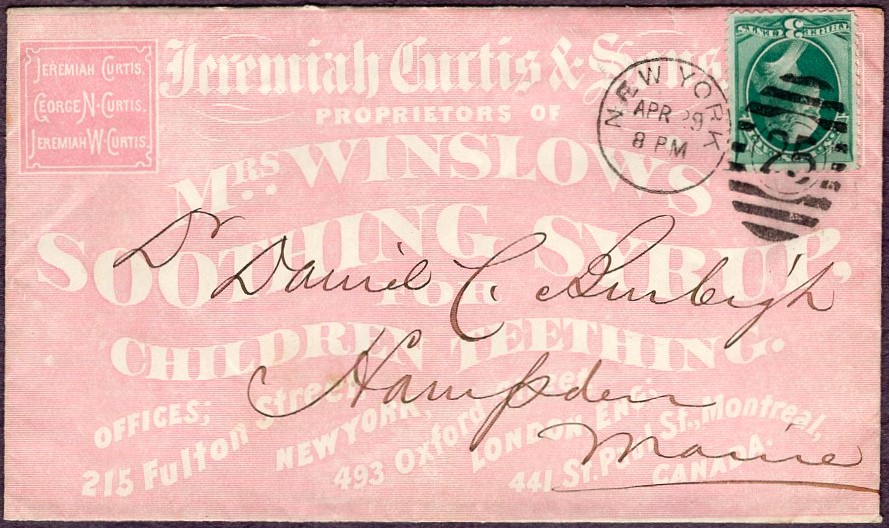 JEREMIAH CURTIS.
GEORGE N. CURTIS.
JEREMIAH W. CURTIS.
Jeremiah Curtis & Sons.
PROPRIETORS OF
MRS. WINSLOW'S
SOOTHING SYRUP,
FOR
CHILDREN TEETHING.
OFFICES;
215 Fulton Street
NEW YORK,
493 Oxford Street
LONDON ENG:
441 St. Paul St., Montreal,
CANADA.
NEW YORK
APR 29
8 PM
3
25
Dr Daniel C. Burleigh
Hampden
Maine